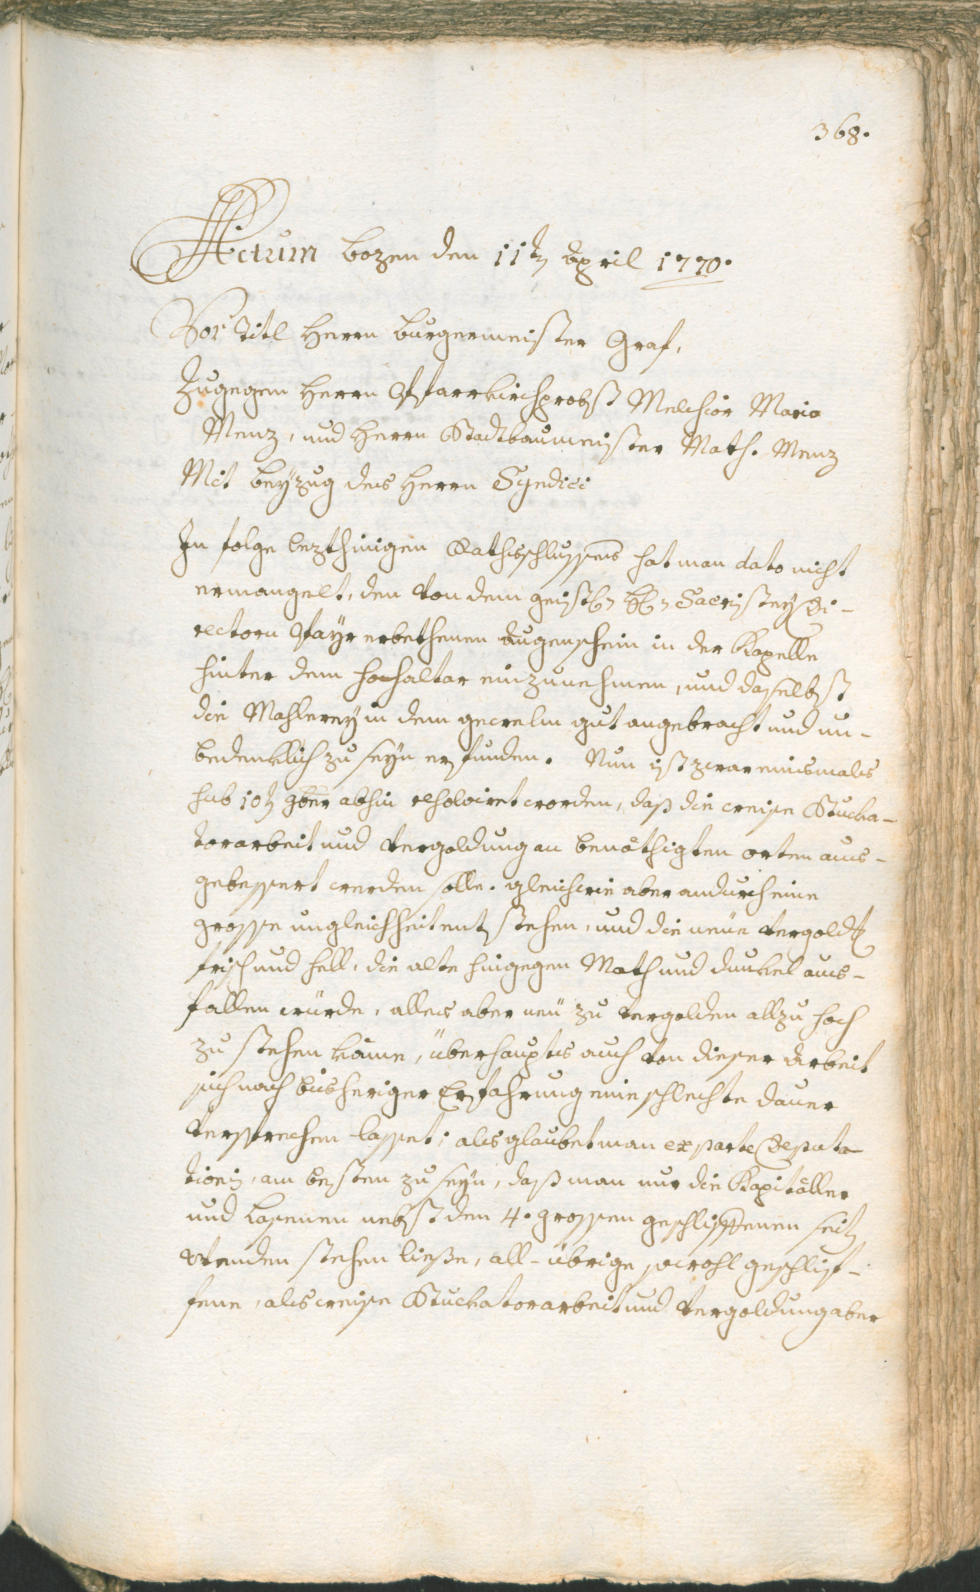 368.
Actum bozen den 11t. April 1770.
Vor Titl Herrn burgermeister Graf,
Zugegen Herrn Pfarrkirchprobst Melchior Maria
Menz, und Herrn Stadtbaumeister Math. Menz
Mit beyzug des Herrn Syndici
In folge lezthinigen Rathsschlusses hat man dato nicht
ermanglet, den von dem geistl. H. Sacristey Di-
rectorn Mayr erbethenen Augenschein in der Kapelle
hinter dem hochaltar einzunehmen, und daselbst
die Mahlerey in dem gewelm gut angebracht und un-
bedenklich zu seyn erfunden. Nun ist zwar einsmals
sub 10t. 9ber abhin resolviret worden, daß die weise Stucka-
torarbeit und Vergoldung an benöthigten orten aus-
gebessert werden solle. gleichwie aber andurch eine
grosse ungleichheit entstehen, und die neüe Vergoldg
frisch und hell, die alte hingegen Math und dunkel aus-
fallen würde, alles aber neü zu vergolden allzu hoch
zu stehen käme, überhaupts auch von dieser Arbeit
sich nach bisheriger Erfahrung eine schlechte dauer
versprechen lasset; als glaubet man ex parte Deputa-
tionis, am besten zu seyn, daß man nur die Kapitäller
und Lasenen nebst den 4. grossen geschliffenen seit
wänden stehen liesse, all-übrige sowohl geschlif-
fene, als weise Stuckatorarbeit und Vergoldung aber